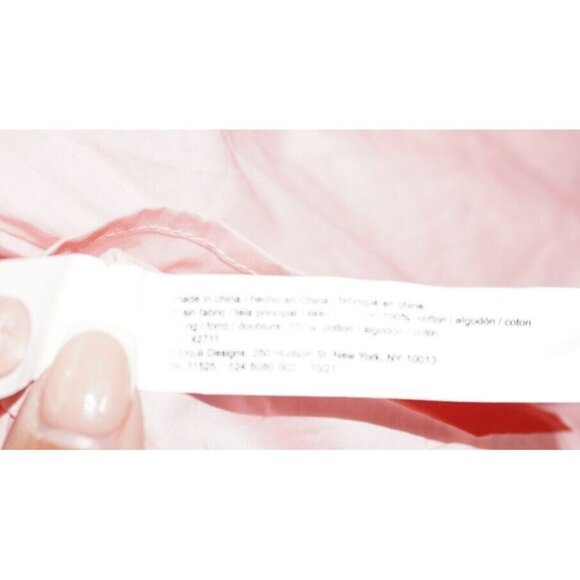 made in china / hecho en China / fabriqué en chine
fabric / tela principal / 100% cotton / algodón / coton
/ forro / doublure: cotton / algodón / coton
42711
Designs. 250 Hudson St. New York, NY 10013
10/21